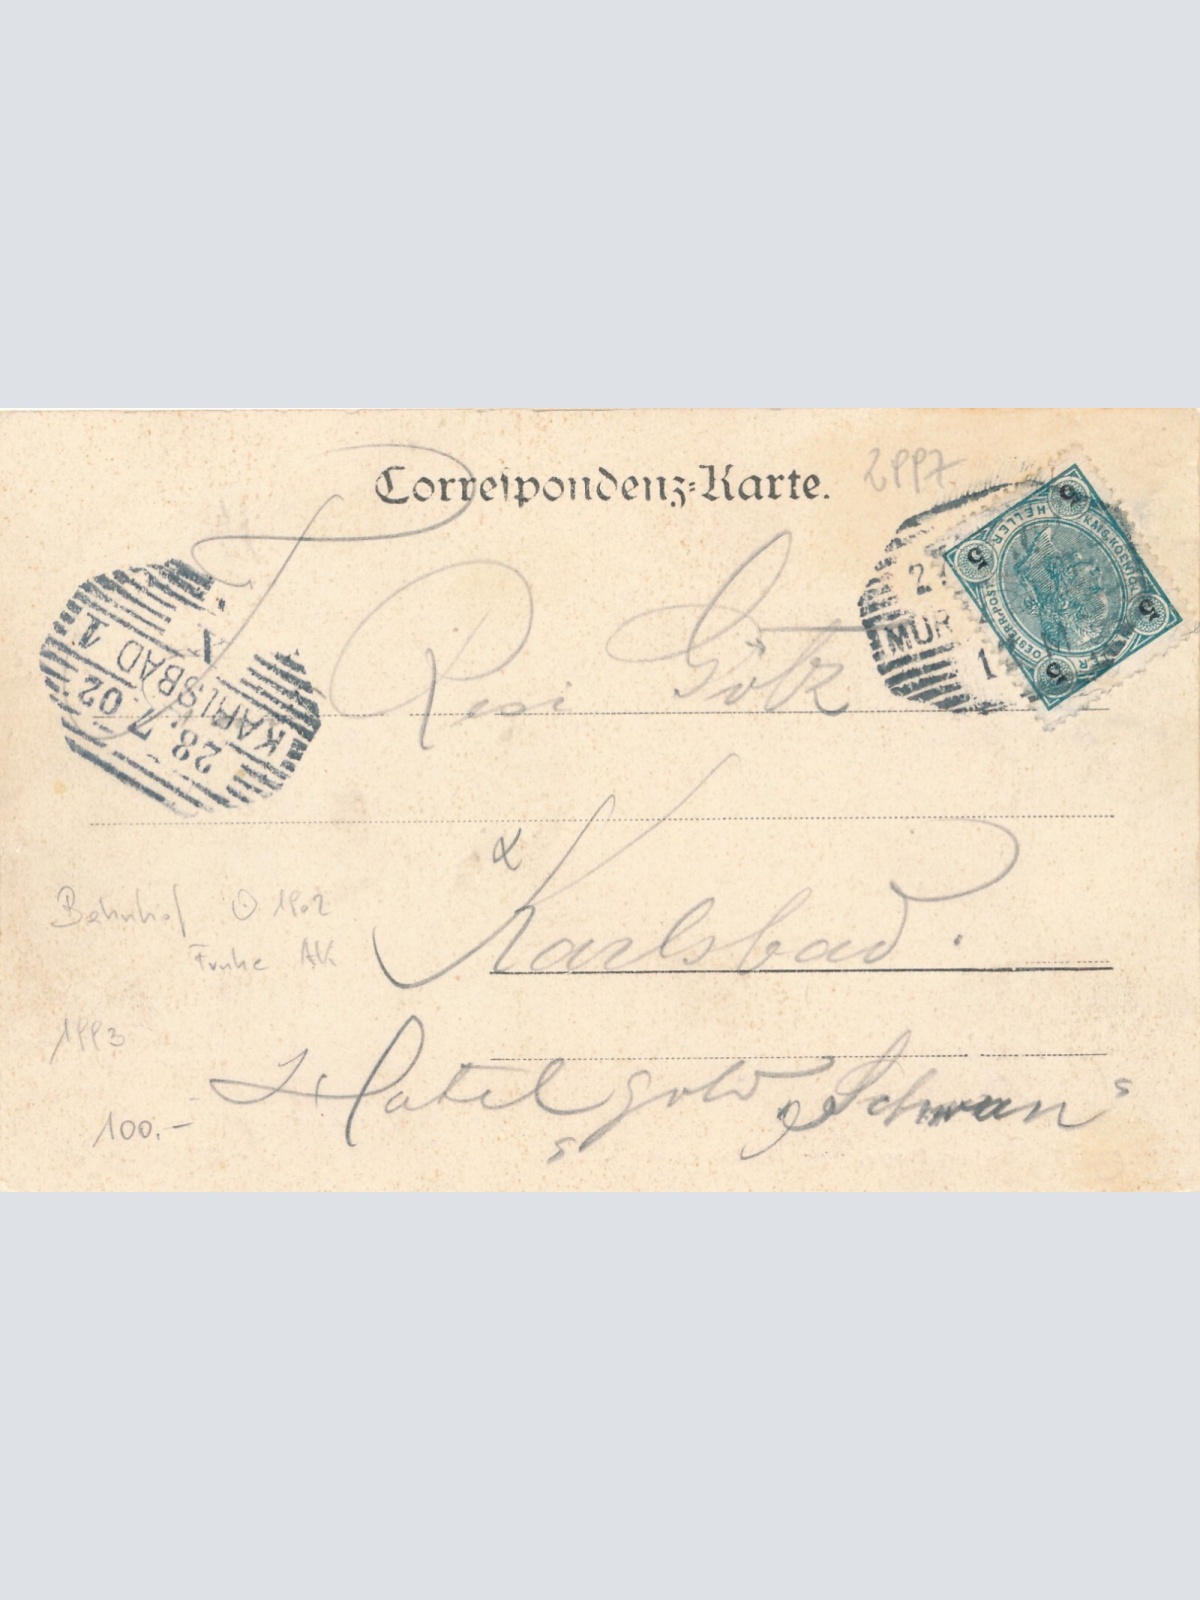 Correspondenz-Karte.
2997.
5 HELLER
KAIS. KOENIGL.
OESTERR. POST
5
5
5
27
MUR
1
KARLSBAD 1
28. 7. 02
X
F. Resi Götz
Karlsbad.
Bahnhof 1902
Frühe AK
1993
Hotel gold Schwan
100.-